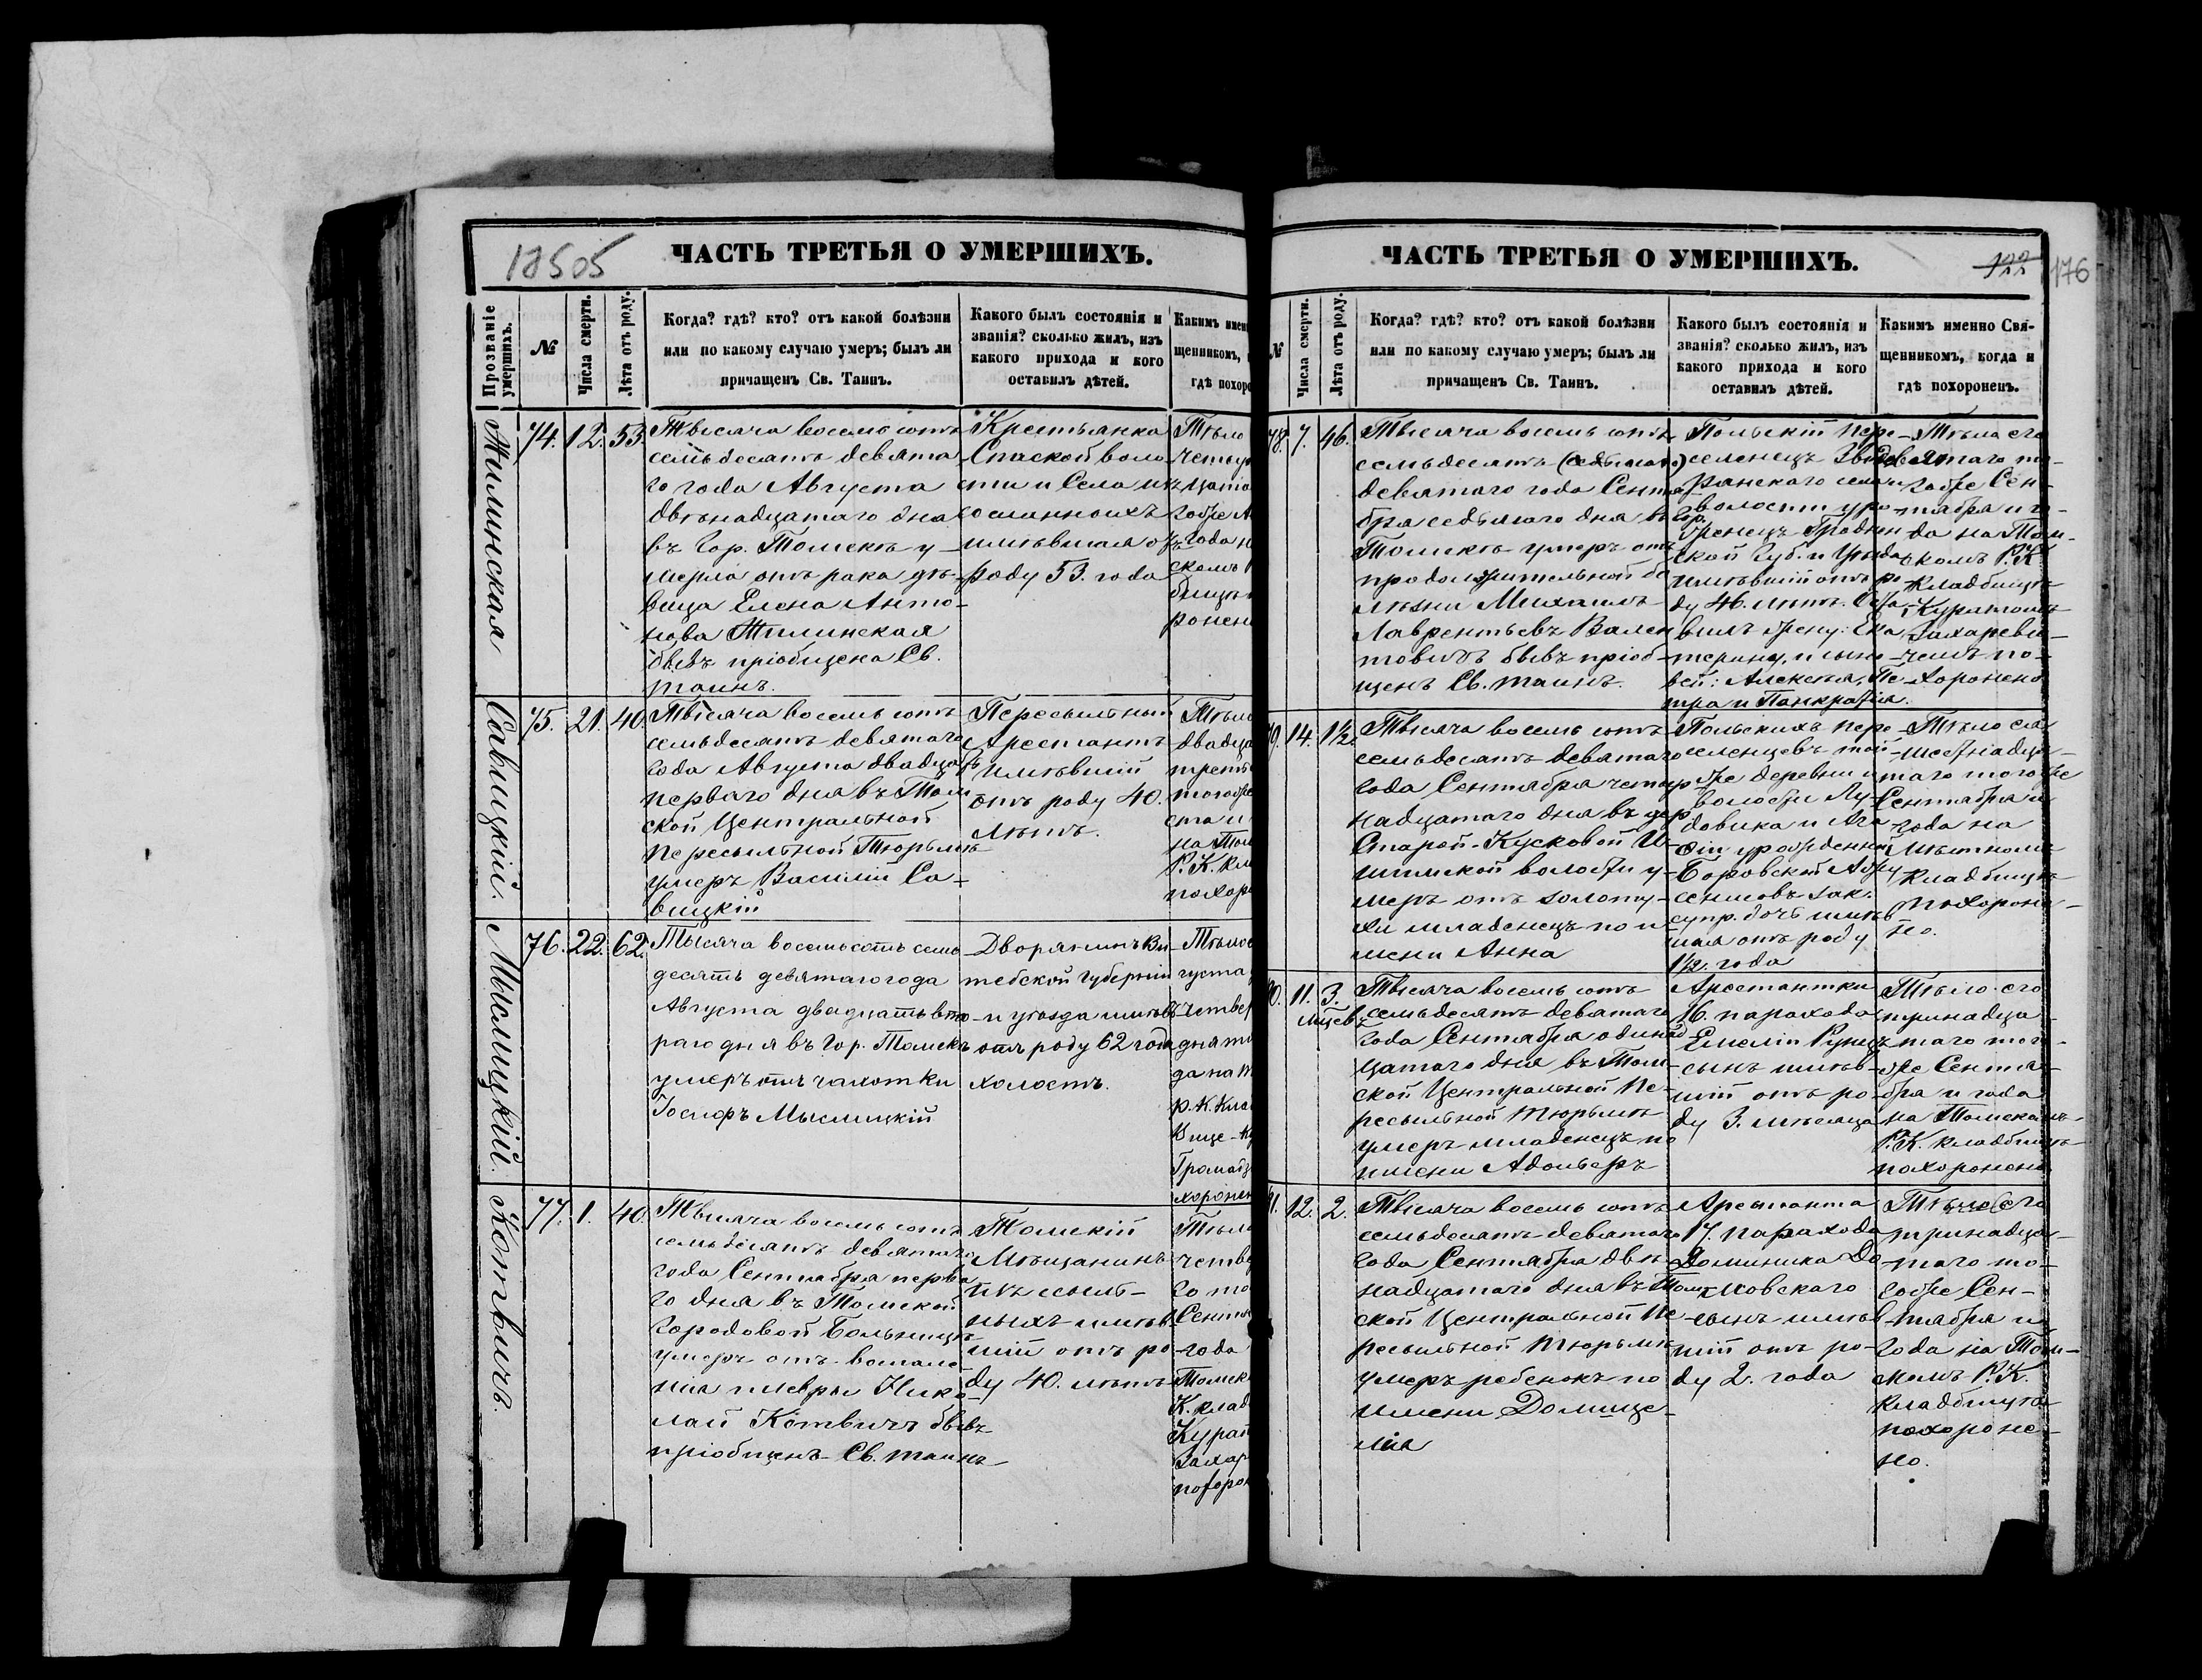 18505
ЧАСТЬ ТРЕТЬЯ О УМЕРШИХЪ.
Прозваніе умершихъ.
№
Числа смерти.
Лѣта отъ роду.
Когда? гдѣ? кто? отъ какой болѣзни
или по какому случаю умеръ; былъ ли
причащенъ Св. Таинъ.
Какого былъ состоянія и
званія? сколько жилъ, изъ
какого прихода и кого
оставилъ дѣтей.
Какимъ имен
щенникомъ,
гдѣ похоро
Жилинская
74.
12.
53
Тысяча восемь сотъ
семьдесятъ девята
го года Августа
двѣнадцатаго дня
въ Гор. Томскѣ у-
мерла отъ рака дѣ-
вица Елена Анто-
нова Жилинская
бывъ пріобщена Св.
таинъ.
Крестьянка
Спаской воло
сти и Села изъ
сосланныхъ
имѣвшая отъ
роду 53. года
Тѣло
четыр
цата
гоже А
года н
скомъ
бищѣ
ронен
Савицкій.
75.
21.
40.
Тысяча восемь сотъ
семьдесятъ девятаго
года Августа двадцать
перваго дня въ Том
ской Центральной
Пересыльной Тюрьмѣ
умеръ Василій Са-
вицкій
Пересыльный
Арестантъ
имѣвшій
отъ роду 40.
лѣтъ.
Тѣло
двадца
треть
тогоже
ста и
на Том
Р. К. кла
похор
Мыслицкій.
76.
22.
62.
Тысяча восемьсотъ семь
десятъ девятаго года
Августа двадцать вто-
раго дня въ Гор. Томскѣ
умеръ отъ чахотки
Іосифъ Мыслицкій
Дворянинъ Ви
тебской Губерніи
и уѣзда имѣвъ
отъ роду 62 года
холостъ.
Тѣло е
густа
четвер
дня т
да на Т
Р. К. Кла
бище-К
Громадз
хоронен
Котвичъ.
77.
1.
40.
Тысяча восемь сотъ
семьдесятъ девятаго
года Сентября перва
го дня въ Томской
Городовой Больницѣ
умеръ отъ воспале-
нія плевры Нико-
лай Котвичъ бывъ
пріобщенъ Св. таинъ
Томскій
Мѣщанинъ
изъ ссыль-
ныхъ имѣв
шій отъ ро-
ду 40. лѣтъ
Тѣло
четве
го то
Сентя
года
Томск
К. клад
Курат
Захар
похоро
ЧАСТЬ ТРЕТЬЯ О УМЕРШИХЪ.
122
176
№
Числа смерти.
Лѣта отъ роду.
Когда? гдѣ? кто? отъ какой болѣзни
или по какому случаю умеръ; былъ ли
причащенъ Св. Таинъ.
Какого былъ состоянія и
званія? сколько жилъ, изъ
какого прихода и кого
оставилъ дѣтей.
Какимъ именно Свя-
щенникомъ, когда и
гдѣ похороненъ.
78.
7.
46.
Тысяча восемь сотъ
семьдесятъ (седьмаго)
девятаго года Сентя-
бря седьмаго дня въ Гор.
Томскѣ умеръ отъ
продолжительной бо
лѣзни Михаилъ
Лаврентьевъ Вален
товичъ бывъ пріоб-
щенъ Св. таинъ.
Польскій пере-
селенецъ
села и
волости уро-
женецъ Гроднен
ской Губ. и Уѣзда
имѣвшій отъ ро
ду 46. лѣтъ. Оста-
вилъ жену: Ека
терину, и сыно-
вей: Алексѣя, Пе
тра и Панкратія.
Тѣло его
девятаго то-
гоже Сен-
тября и го-
да на Том-
скомъ Р. К.
Кладбищѣ
Куратомъ
Захареви-
чемъ по-
хоронено
79.
14.
1½.
Тысяча восемь сотъ
семьдесятъ девятаго
года Сентября четыр
надцатаго дня въ дер.
Старой-Кусковой И-
шимской волости у-
меръ отъ золоту-
хи младенецъ по и
мени Анна
Польскихъ пере
селенцевъ той-
же деревни и
волости Лу-
довика и Ага
фіи урожденной
Боровской
зак.
супр. дочь имѣв
шая отъ роду
1½. года
Тѣло ея
шестнадца-
таго тогоже
Сентября и
года на
Мѣстномъ
Кладбищѣ
похороне-
но.
80.
11.
3.
мѣсяц.
Тысяча восемь сотъ
семьдесятъ девятаго
года Сентября одинад
цатаго дня въ Том-
ской Центральной Пе-
ресыльной Тюрьмѣ
умеръ младенецъ по
имени Адольфъ
Арестантки
16. парахода
Емеліи
сынъ имѣв-
шій отъ ро-
ду 3. мѣсяца
Тѣло его
тринадца-
таго того-
же Сентя-
бря и года
на Томскомъ
Р. К. кладбищѣ
похоронено
81.
12.
2.
Тысяча восемь сотъ
семьдесятъ девятаго
года Сентября двѣ-
надцатаго дня въ Том
ской Центральной Пе
ресыльной Тюрьмѣ
умеръ ребенокъ по
имени Домице-
лія
Арестанта
17. парахода
Доминика До-
мховскаго
сынъ имѣв
шій отъ ро-
ду 2. года
Тѣло его
тринадца-
таго то-
гоже Сен-
тября и
года на Том-
скомъ Р. К.
кладбищѣ
похороне-
но.